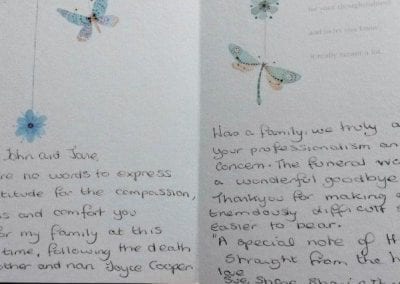 John and Jane,
are no words to express
titude for the compassion,
ss and comfort you
for my family at this
time, following the death
other and nan Joyce Cooper
for your thoughtfulness
and to let you know,
it really meant a lot.
Has a family, we truly a
your professionalism an
concern. The funeral w
a wonderful goodbye
Thankyou for making a
tremdously difficult s
easier to bear.
"A special note of th
straight from the h
love
Sue,